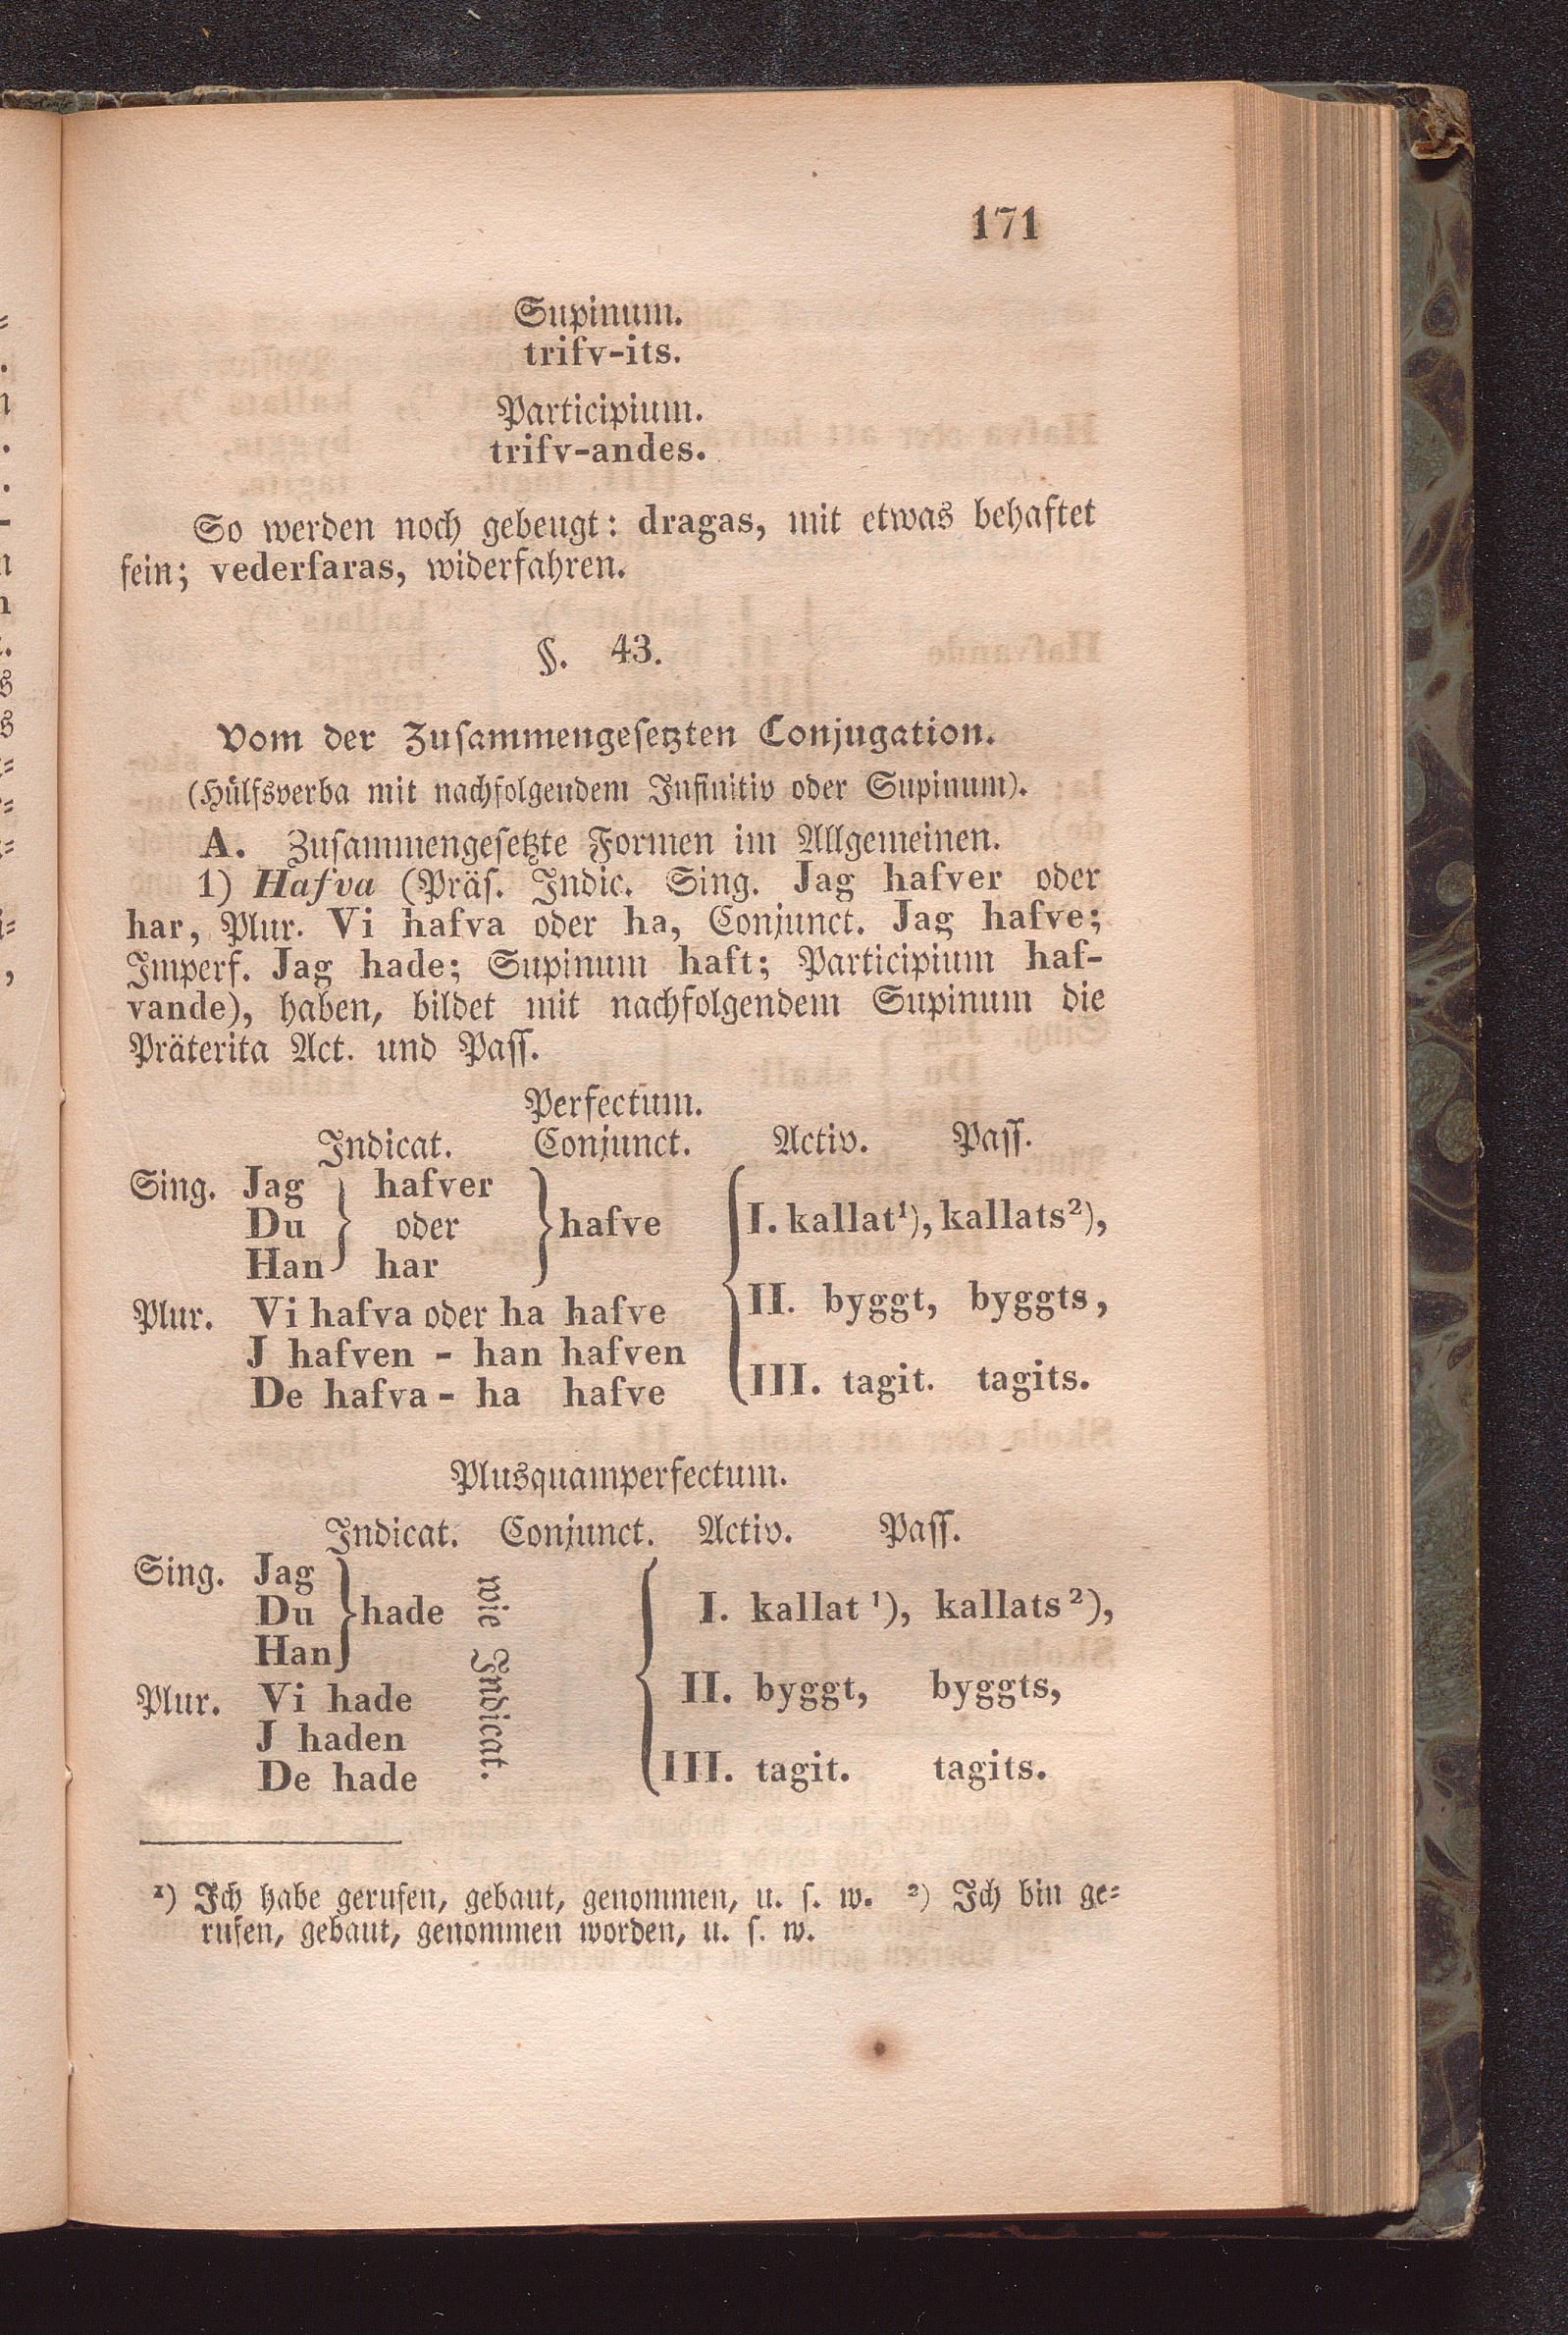 171
Supinum.
trifv-its.
Participium.
trifv-andes.
So werden noch gebeugt: dragas, mit etwas behaftet
sein; vederfaras, widerfahren.
§. 43.
Vom der Zusammengesetzten Conjugation.
(Hülfsverba mit nachfolgendem Infinitiv oder Supinum).
A. Zusammengesetzte Formen im Allgemeinen.
1) Hafva (Präs. Indic. Sing. Jag hafver oder
har, Plur. Vi hafva oder ha, Conjunct. Jag hafve;
Imperf. Jag hade; Supinum haft; Participium haf-
vande), haben, bildet mit nachfolgendem Supinum die
Präterita Act. und Pass.
Perfectum.
Indicat. Conjunct. Activ. Pass.
Sing. Jag hafver
Du oder hafve I. kallat¹), kallats²),
Han har
Plur. Vi hafva oder ha hafve II. byggt, byggts,
J hafven - han hafven
De hafva - ha hafve III. tagit. tagits.
Plusquamperfectum.
Indicat. Conjunct. Activ. Pass.
Sing. Jag
Du hade wie Indicat. I. kallat ¹), kallats ²),
Han
Plur. Vi hade II. byggt, byggts,
J haden
De hade III. tagit. tagits.
¹) Ich habe gerufen, gebaut, genommen, u. s. w. ²) Ich bin ge-
rufen, gebaut, genommen worden, u. s. w.